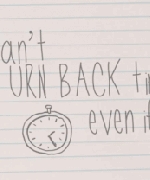 an't
URN BACK ti
even i